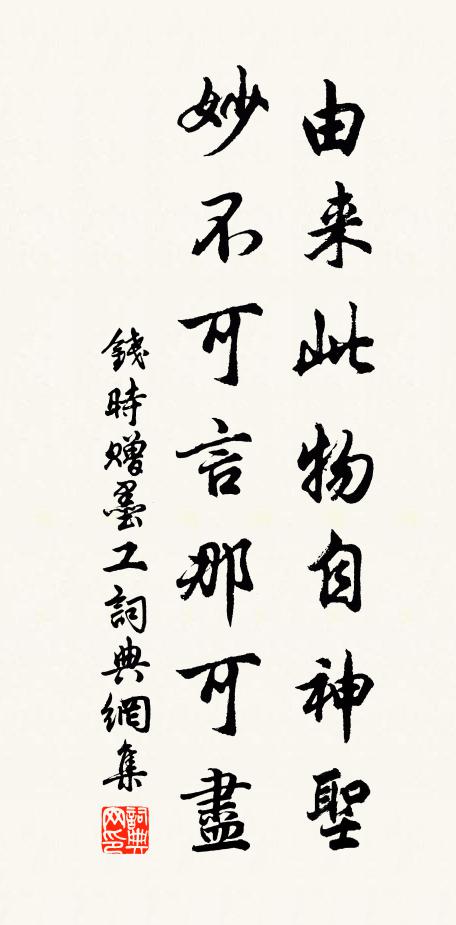 由来此物自神聖
妙不可言那可盡
錢時贈墨工詞典網集
詞典网印